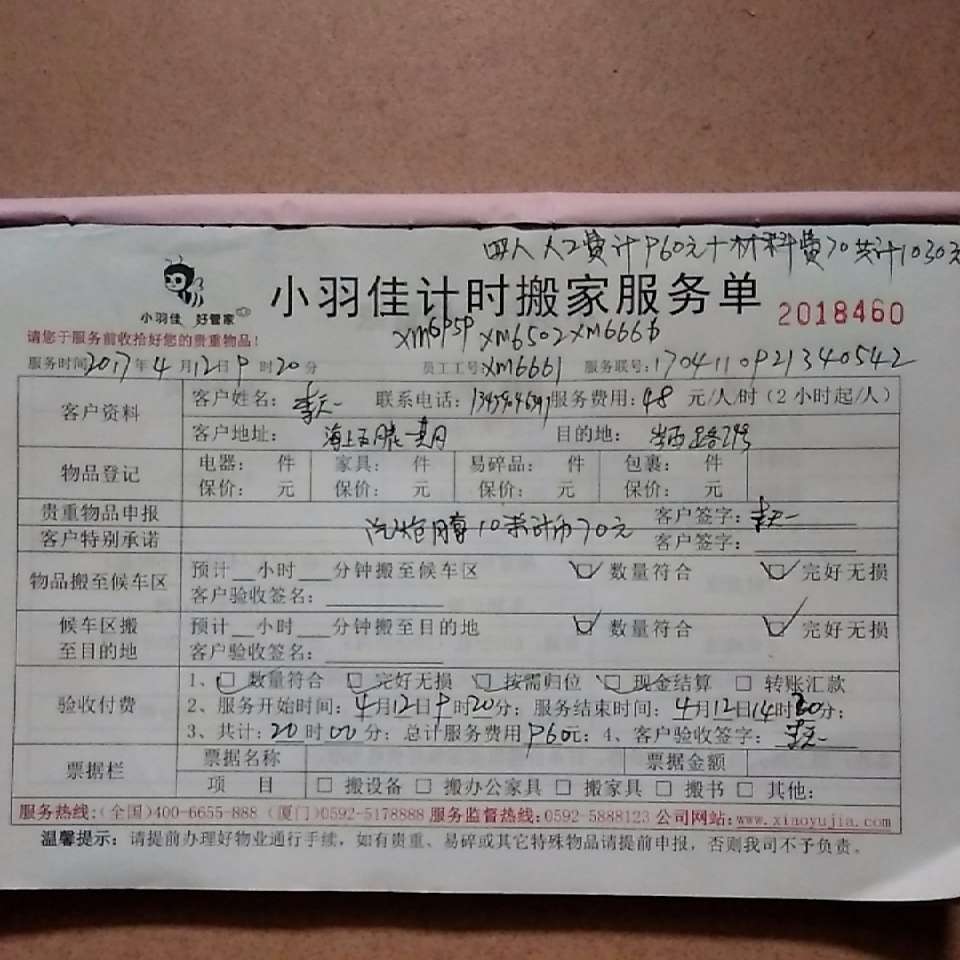 四人人工费计960元+材料费70共计1030元
小羽佳 好管家
小羽佳计时搬家服务单 2018460
请您于服务前收拾好您的贵重物品!
xm6959 xm6502 xm6666
服务时间2017年4月12日9时20分 员工工号:xm6661 服务联号:1704110921340542
客户资料 客户姓名: 联系电话: 服务费用:48元/人/时(2小时起/人)
客户地址: 海上五月花一期 目的地:
物品登记 电器: 件 家具: 件 易碎品: 件 包裹: 件
保价: 元 保价: 元 保价: 元 保价: 元
贵重物品申报 客户签字:
10 70元
客户特别承诺 客户签字:
物品搬至候车区 预计__小时___分钟搬至候车区 数量符合 完好无损
客户验收签名:
候车区搬至目的地 预计__小时___分钟搬至目的地 数量符合 完好无损
客户验收签名:
验收付费 1、□ 数量符合 □ 完好无损 □ 按需归位 □ 现金结算 □ 转账汇款
2、服务开始时间:4月12日9时20分;服务结束时间:4月12日14时20分;
3、共计:20时00分;总计服务费用960元;4、客户验收签字:
票据栏 票据名称 票据金额
项 目 □ 搬设备 □ 搬办公家具 □ 搬家具 □ 搬书 □ 其他:
服务热线:(全国)400-6655-888 (厦门)0592-5178888 服务监督热线:0592-5888123 公司网站:www.xiaoyujia.com
温馨提示:请提前办理好物业通行手续,如有贵重、易碎或其它特殊物品请提前申报,否则我司不予负责。